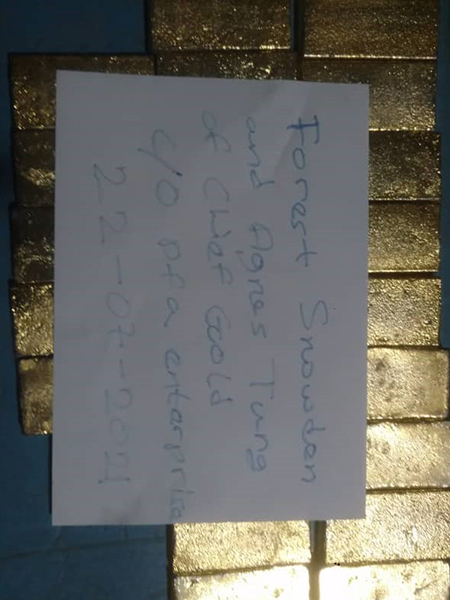 Forest Snowden
and Agnes Tung
of Chief Goold
C/O Pfa enterprise
22-07-2021